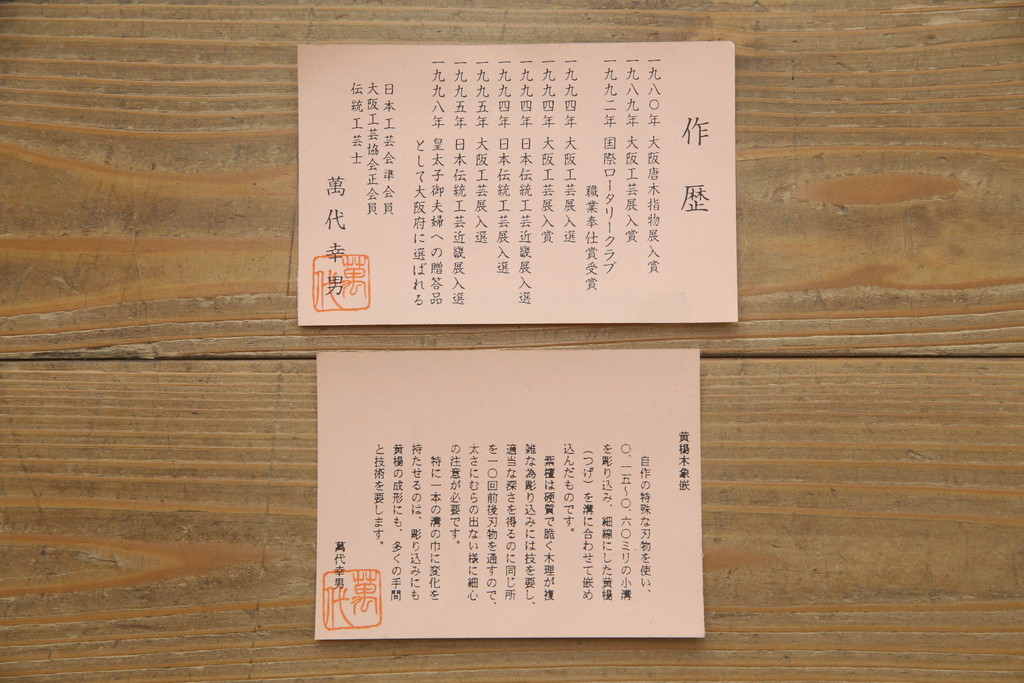 作歴
一九八〇年 大阪唐木指物展入賞
一九八九年 大阪工芸展入賞
一九九二年 国際ロータリークラブ
職業奉仕賞受賞
一九九四年 大阪工芸展入選
一九九四年 大阪工芸展入賞
一九九四年 日本伝統工芸近畿展入選
一九九四年 日本伝統工芸展入選
一九九五年 大阪工芸展入選
一九九五年 日本伝統工芸近畿展入選
一九九八年 皇太子御夫婦への贈答品
として大阪府に選ばれる
日本工芸会準会員
大阪工芸協会正会員
伝統工芸士
萬代幸男
萬代
黄楊木象嵌
自作の特殊な刃物を使い、
〇.一五〜〇.六〇ミリの小溝
を彫り込み、細線にした黄楊
(つげ)を溝に合わせて嵌め
込んだものです。
紫檀は硬質で脆く木理が複
雑な為彫り込みには技を要し、
適当な深さを得るのに同じ所
を一〇回前後刃物を通すので、
太さにむらの出ない様に細心
の注意が必要です。
特に一本の溝の巾に変化を
持たせるのは、彫り込みにも
黄楊の成形にも、多くの手間
と技術を要します。
萬代幸男
萬代